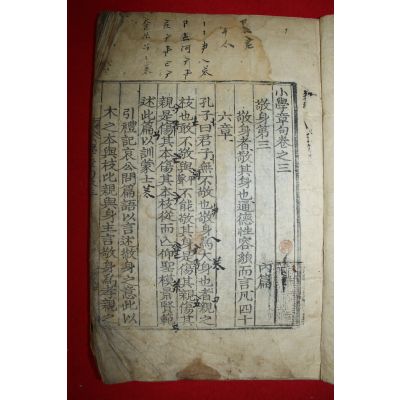 小學章句卷之三
內篇
敬身第三
敬身者敬其身也通德性容貌而言凡四十
六章
孔子曰君子無不敬也敬身爲大身也者親之
枝也敢不敬與不能敬其身是傷其親傷其
親是傷其本傷其本枝從而亡仰聖模景賢範
述此篇以訓蒙士
引禮記哀公問篇語以言述敬身之意此以
木之本與枝比親與身主言敬身爲孝親之